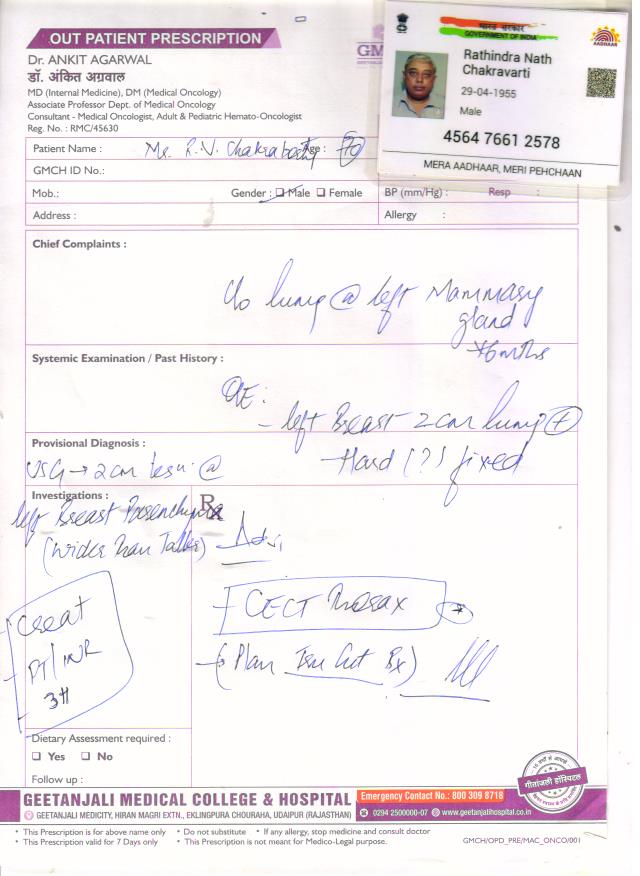 OUT PATIENT PRESCRIPTION
Dr. ANKIT AGARWAL
डॉ. अंकित अग्रवाल
MD (Internal Medicine), DM (Medical Oncology)
Associate Professor Dept. of Medical Oncology
Consultant - Medical Oncologist, Adult & Pediatric Hemato-Oncologist
Reg. No. : RMC/45630
GM
भारत सरकार
GOVERNMENT OF INDIA
AADHAAR
Rathindra Nath
Chakravarti
29-04-1955
Male
4564 7661 2578
MERA AADHAAR, MERI PEHCHAAN
Patient Name : Mr. R.N. Chakraborty Age : 70
GMCH ID No.:
Mob.: Gender : Male Female BP (mm/Hg) : Resp :
Address : Allergy :
Chief Complaints :
c/o lump @ left Mammary
gland
x6mths
Systemic Examination / Past History :
O/E :
- left Breast 2cm lump +
Hard (?) fixed
Provisional Diagnosis :
USG → 2cm lesn @
Investigations :
left Breast Parenchyma
(wider than Taller)
Rx
Adv.
CECT Thorax
(Plan Tru Cut Bx)
Creat
PT/INR
3H
Dietary Assessment required :
Yes No
Follow up :
गीतांजली हॉस्पिटल
GEETANJALI MEDICAL COLLEGE & HOSPITAL
Emergency Contact No.: 800 309 8718
GEETANJALI MEDICITY, HIRAN MAGRI EXTN., EKLINGPURA CHOURAHA, UDAIPUR (RAJASTHAN)
0294 2500000-07 www.geetanjalihospital.co.in
* This Prescription is for above name only * Do not substitute * If any allergy, stop medicine and consult doctor
* This Prescription valid for 7 Days only * This Prescription is not meant for Medico-Legal purpose.
GMCH/OPD_PRE/MAC_ONCO/001